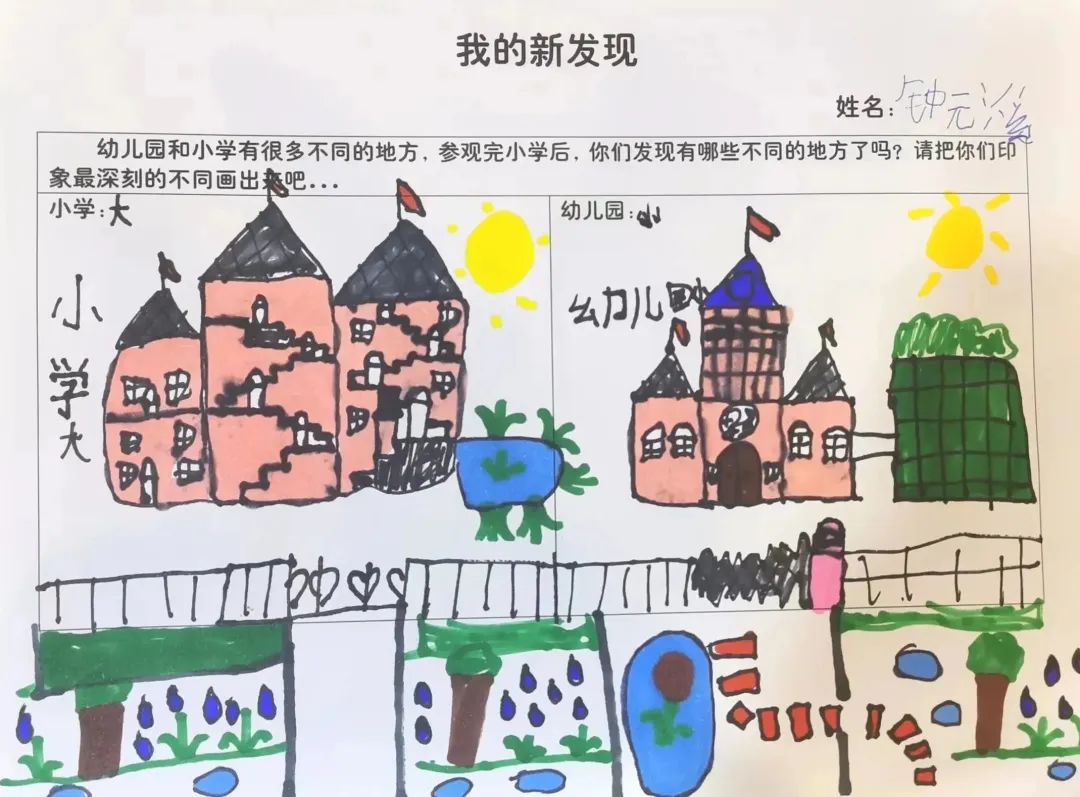 我的新发现
姓名：钟元
幼儿园和小学有很多不同的地方，参观完小学后，你们发现有哪些不同的地方了吗？请把你们印
象最深刻的不同画出来吧...
小学：大
幼儿园：小
小学大
幼儿园小